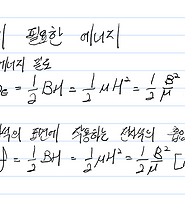 필요한 에너지
에너지 밀도
= 1/2 BH = 1/2 μH² = 1/2 B²/μ
표면에 작용하는 단위의
= 1/2 BH = 1/2 μH² = 1/2 B²/μ [